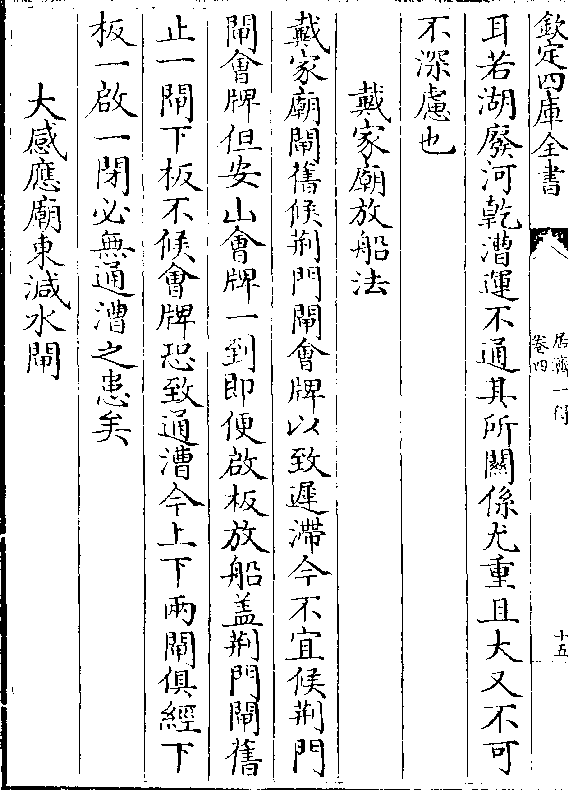 欽定四庫全書
居濟一得
卷四
十五
耳若湖廢河乾漕運不通其所關係尤重且大又不可
不深慮也
戴家廟放船法
戴家廟閘舊候荆門閘會牌以致遲滯今不宜候荆門
閘會牌但安山會牌一到即便啟板放船盖荆門閘舊
止一閘下板不候會牌恐致通漕今上下兩閘俱經下
板一啟一閉必無通漕之患矣
大感應廟東減水閘